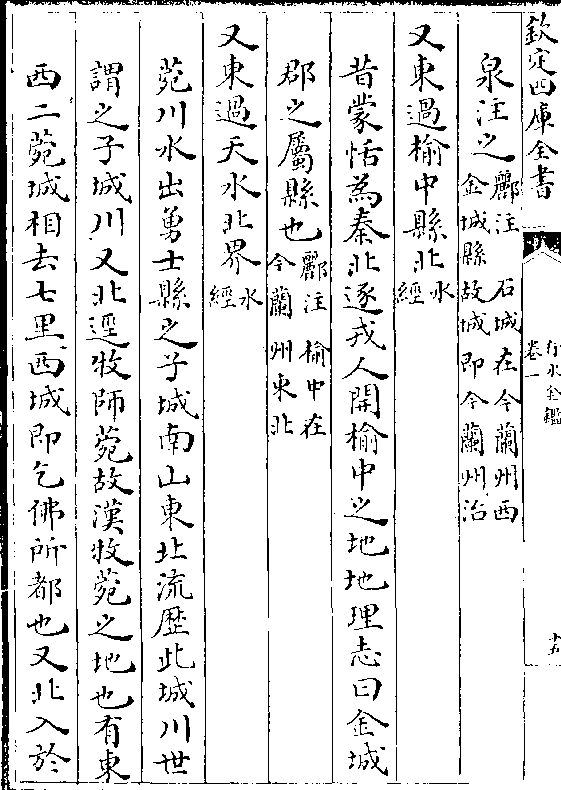 欽定四庫全書
行水金鑑
卷一
十五
泉注之酈注 石城在今蘭州西
金城縣故城即今蘭州治
又東過榆中縣北水
經
昔蒙恬為秦北逐戎人開榆中之地地理志曰金城
郡之屬縣也酈注 榆中在
今蘭州東北
又東過天水北界水
經
菀川水出勇士縣之子城南山東北流歴此城川世
謂之子城川又北逕牧師菀故漢牧菀之地也有東
西二菀城相去七里西城即乞佛所都也又北入於